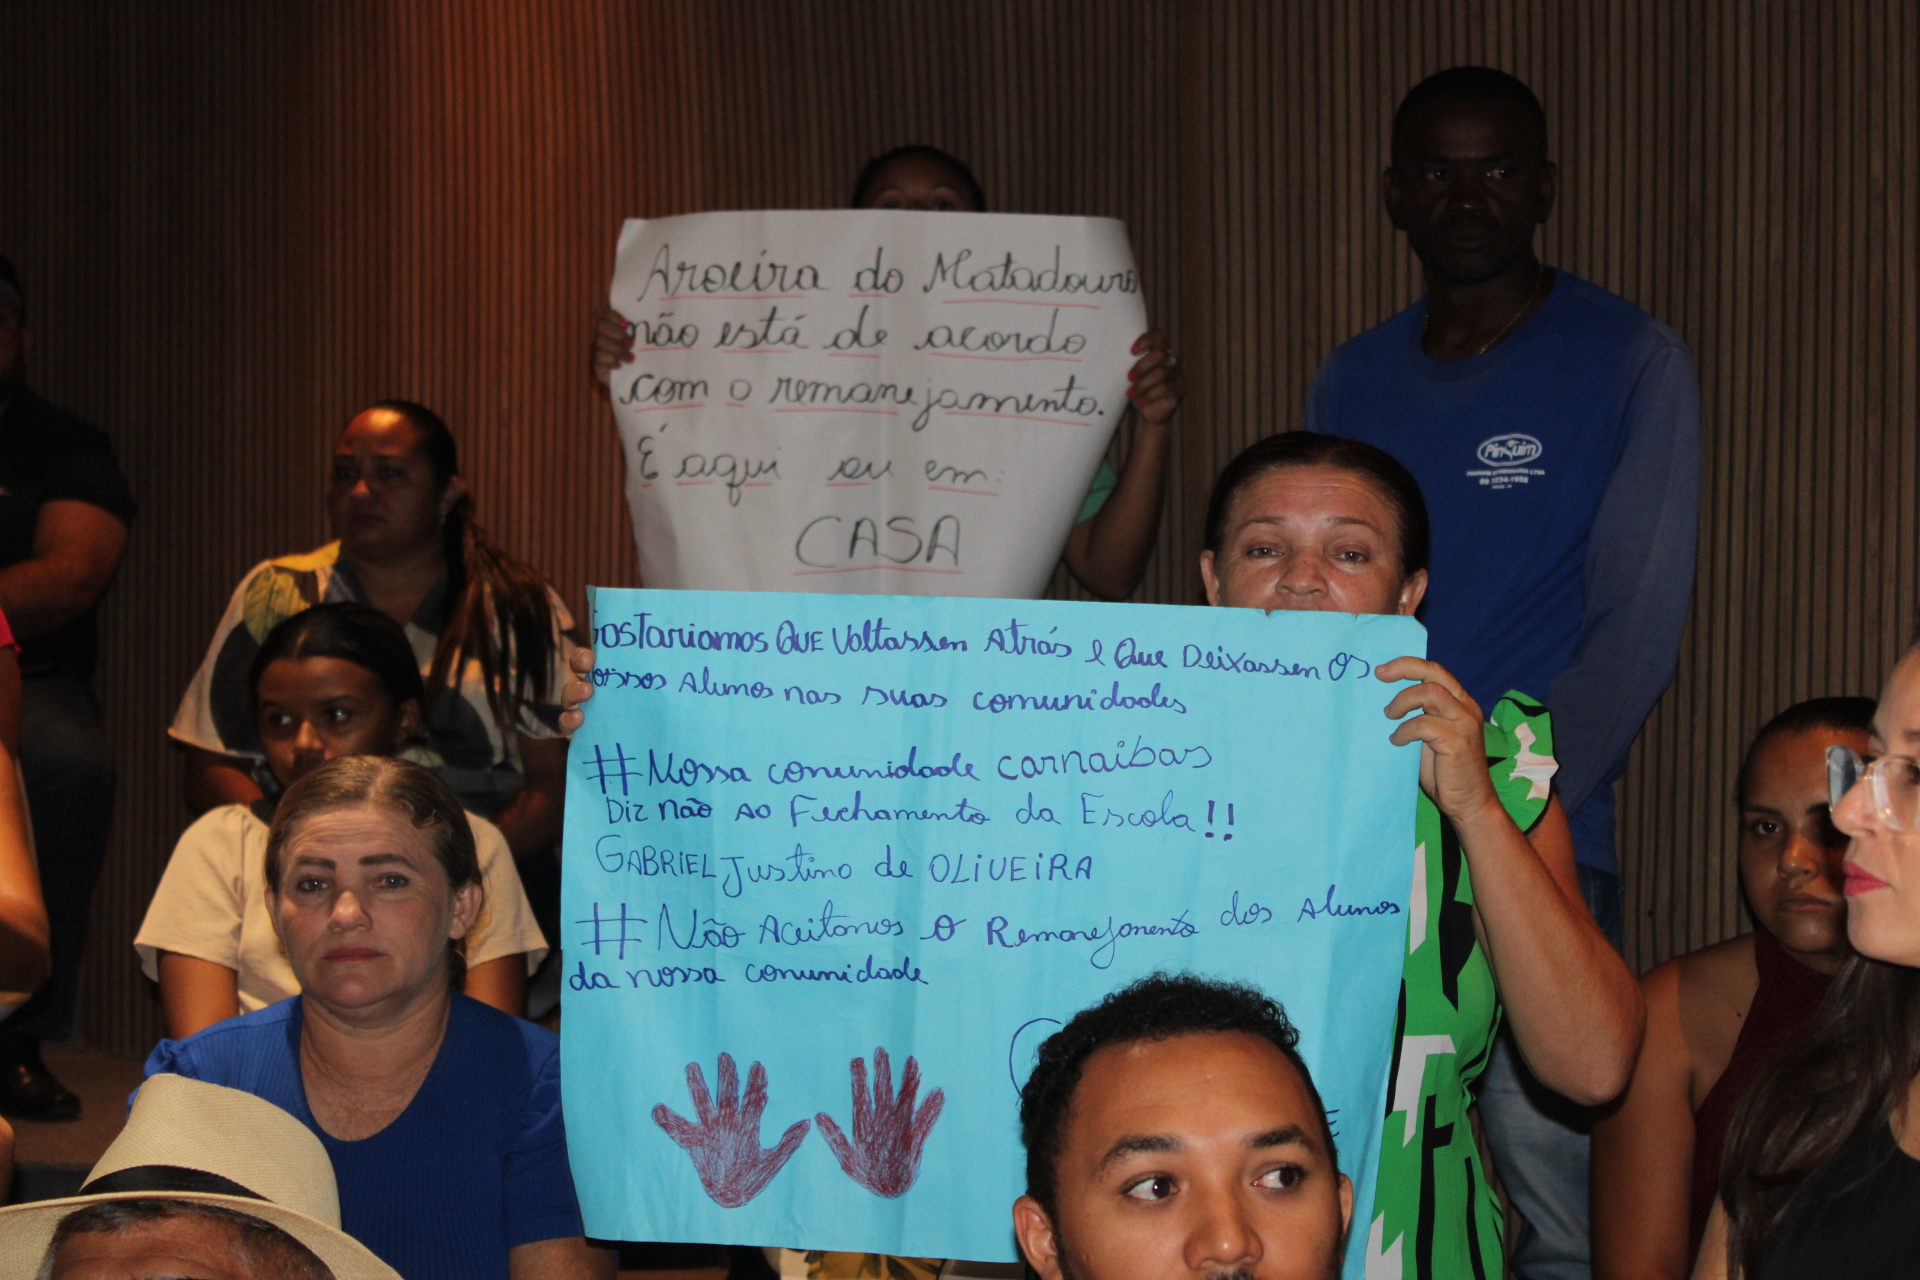 Aroeira do Matadouro
não está de acordo
com o remanejamento.
É aqui ou em:
CASA
Gostariamos QUE Voltassen Atrás e Que Deixassen Os
nossos Alunos nas suas comunidades
#Nossa comunidade carnaibas
Diz não Ao Fechamento da Escola!!
GABRIEL Justino de OLIVEIRA
#Não Aceitamos O Remanejamento dos Alunos
da nossa comunidade
Pinguim